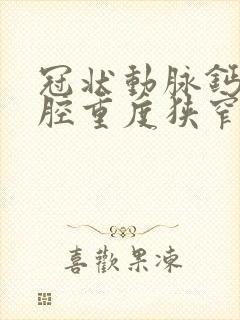 冠状動脉鈣
腔重度狹窄
喜歡果凍